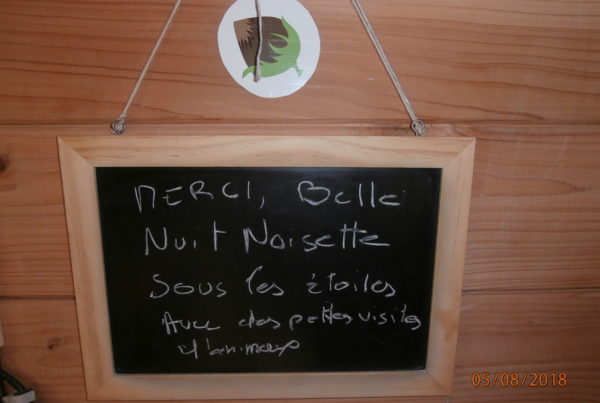 MERCI, Belle
Nuit Noisette
Sous les étoiles
Avec des petites visites
d'animaux
05/08/2018